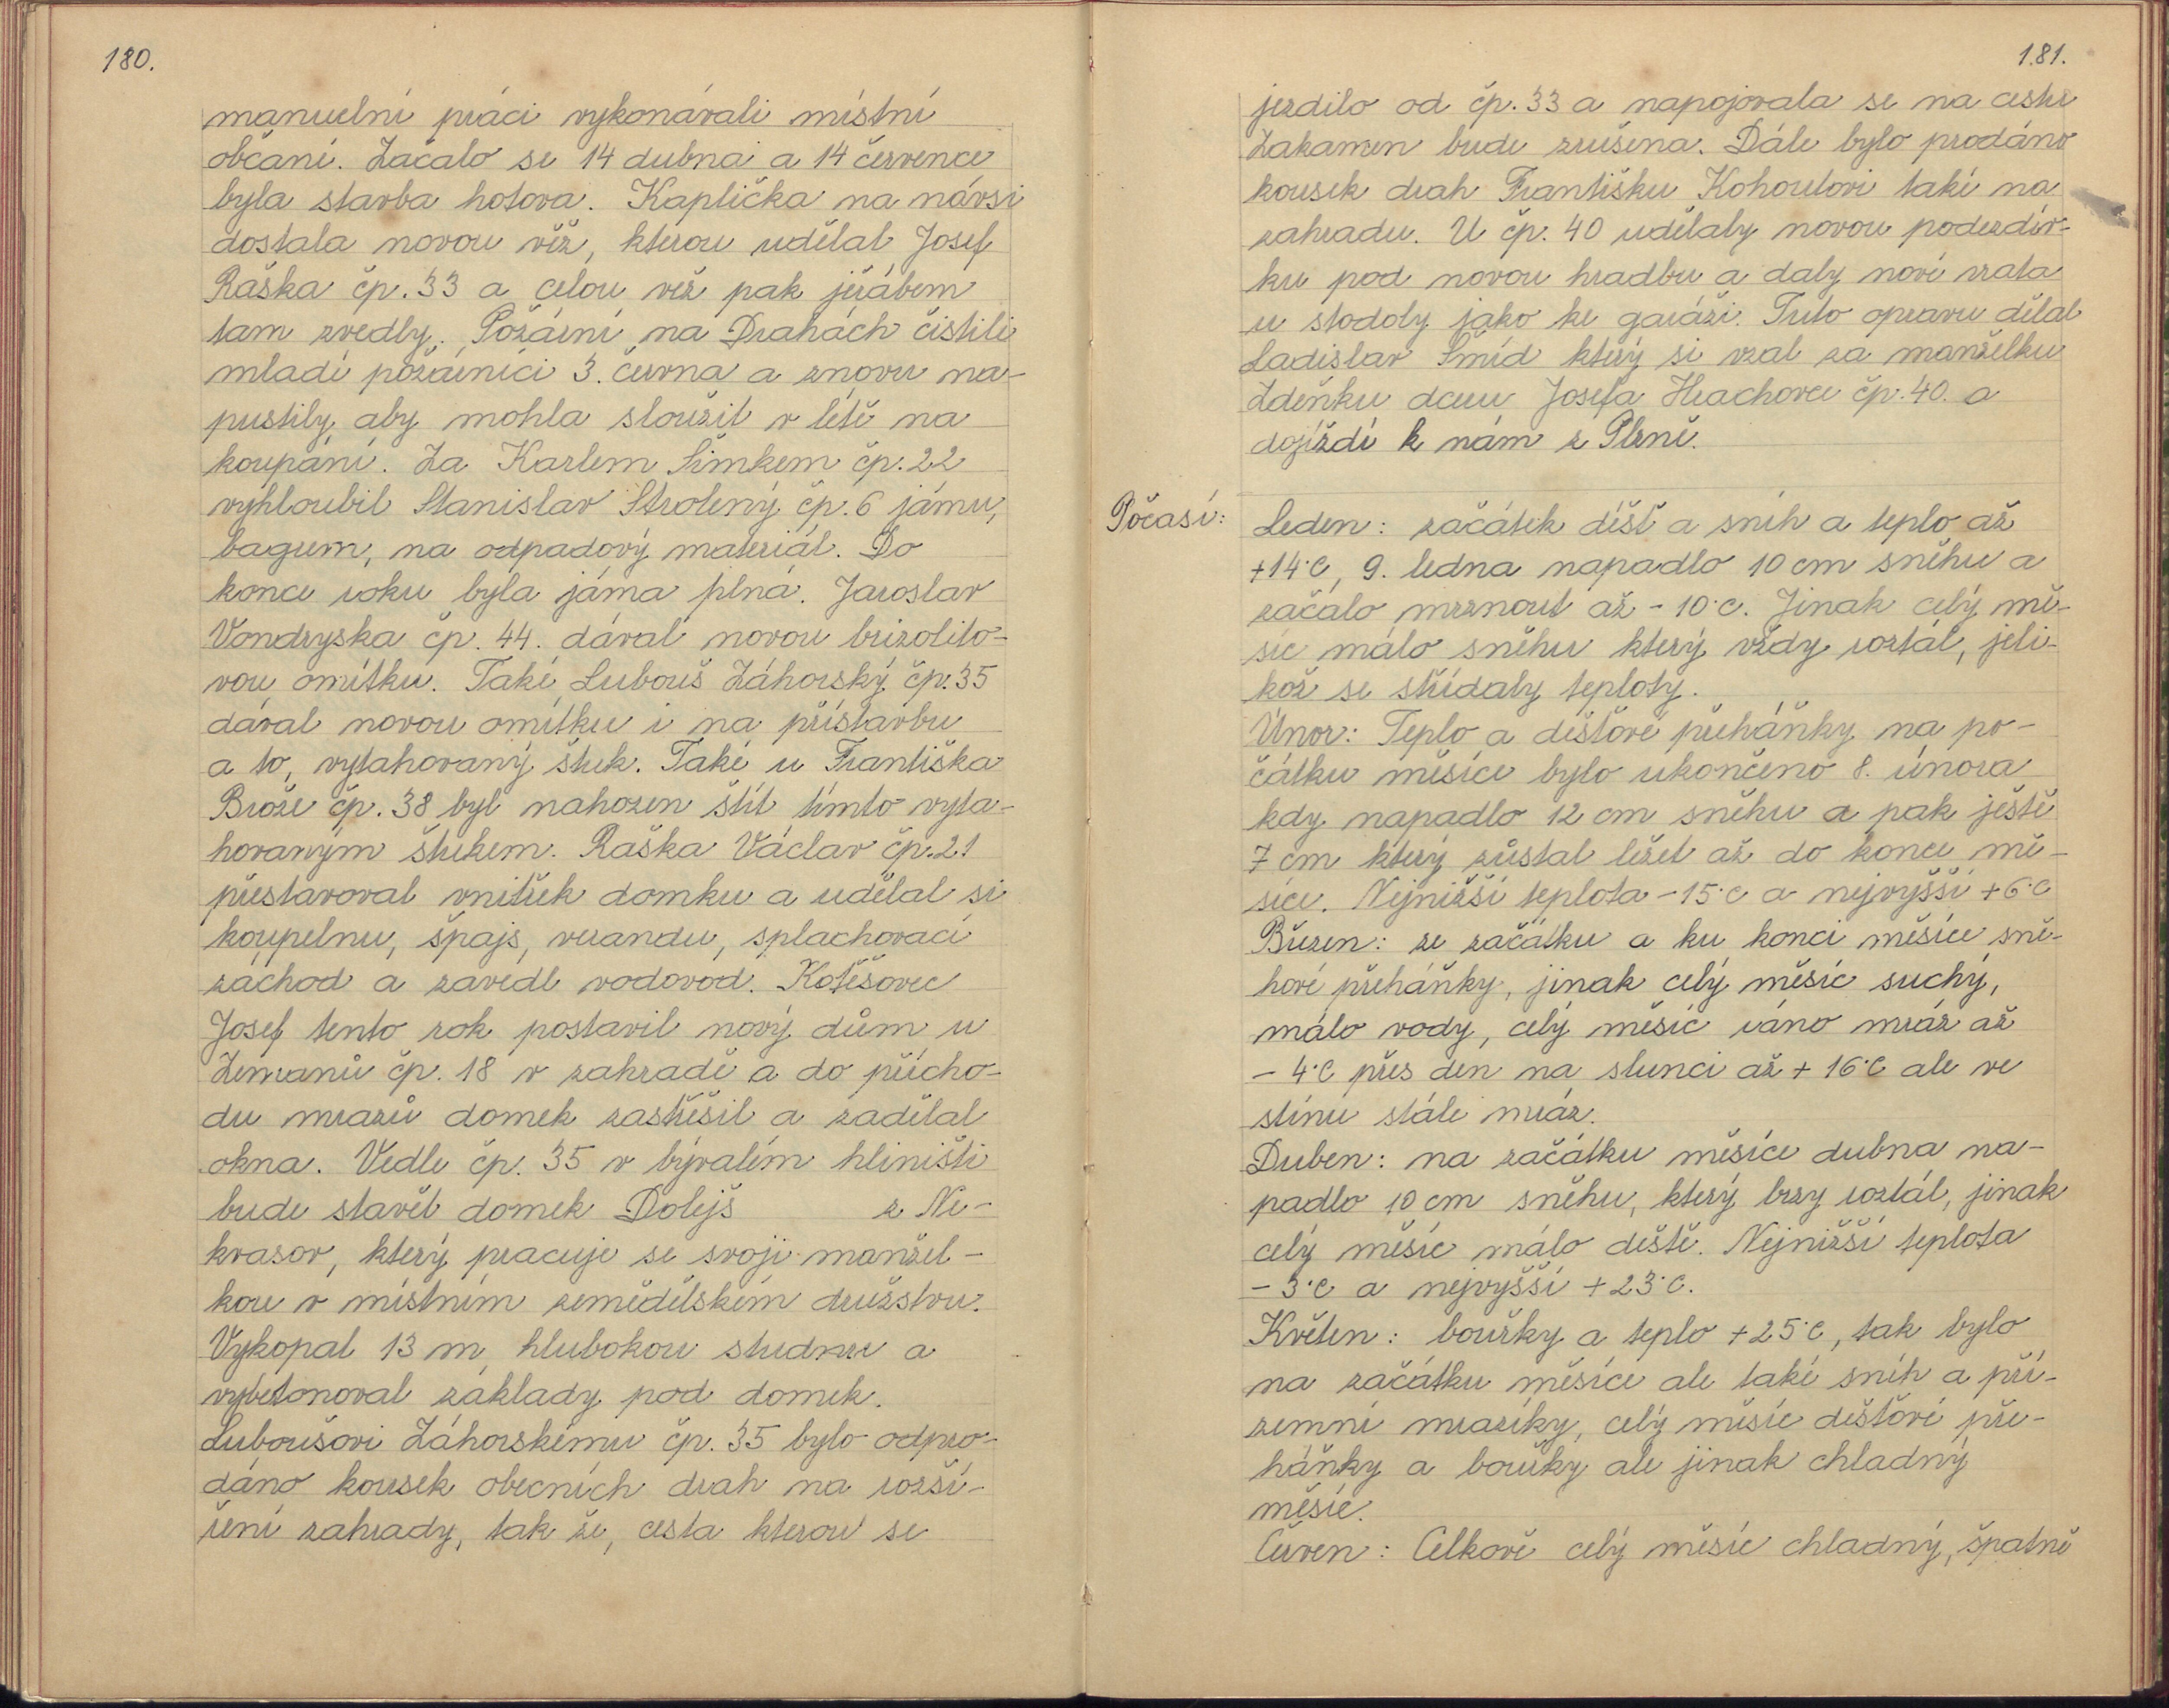 180.
manuelní práci vykonávali místní
občané. Začalo se 14 dubna a 14 července
byla stavba hotova. Kaplička na návsi
dostala novou věž, kterou udělal Josef
Raška čp. 33 a celou věž pak jeřábem
tam zvedly. Požární na Drahách čistili
mladí požárníci 3. června a znovu na-
pustily, aby mohla sloužit v létě na
koupání. Za Karlem Šimkem čp. 22
vyhloubil Stanislav Strolený čp. 6 jámu,
bagum, na odpadový materiál. Do
konce roku byla jáma plná. Jaroslav
Vondryska čp. 44. dával novou brizolito-
vou omítku. Také Luboš Záhorský čp. 35
dával novou omítku i na přístavbu
a to, vytahovaný štuk. Také u Františka
Brože čp. 38 byl nahozen štít tímto vyta-
hovaným štukem. Raška Václav čp. 21
přestavoval vnitřek domku a udělal si
koupelnu, špajs, verandu, splachovací
záchod a zavedl vodovod. Kotěšovec
Josef tento rok postavil nový dům u
Zemanů čp. 18 v zahradě a do přícho-
du mrazů domek zastřešil a zadělal
okna. Vedle čp. 35 v bývalém hliništi
bude stavět domek Dolejš z Ne-
krasov, který pracuje se svojí manžel-
kou v místním zemědělském družstvu.
Vykopal 13 m hlubokou studnu a
vybetonoval základy pod domek.
Luboušovi Záhorskému čp. 35 bylo odpro-
dáno kousek obecních drah na rozší-
ření zahrady, tak že, cesta kterou se
181.
jezdilo od čp. 33 a napojovala se na cestu
Zakamen bude zrušena. Dále bylo prodáno
kousek drah Františku Kohoutovi také na
zahradu. U čp. 40 udělaly novou podezdív-
ku pod novou hradbu a daly nové vrata
u stodoly jako ke garáži. Tuto opravu dělal
Ladislav Šmíd který si vzal za manželku
Zdeňku dceru Josefa Hrachovce čp. 40. a
dojíždí k nám z Plzně.
Počasí:
Leden: začátek déšť a sníh a teplo až
+14°C, 9. ledna napadlo 10 cm sněhu a
začalo mrznout až -10°C. Jinak celý mě-
síc málo sněhu který vždy roztál, jeli-
kož se střídaly teploty.
Únor: Teplo a dešťové přeháňky na po-
čátku měsíce bylo ukončeno 8. února
kdy napadlo 12 cm sněhu a pak ještě
7 cm který zůstal ležet až do konce mě-
síce. Nejnižší teplota -15°C a nejvyšší +6°C
Březen: ze začátku a ku konci měsíce sně-
hové přeháňky, jinak celý měsíc suchý,
málo vody, celý měsíc ráno mráz až
- 4°C přes den na slunci až + 16°C ale ve
stínu stále mráz.
Duben: na začátku měsíce dubna na-
padlo 10 cm sněhu, který brzy roztál, jinak
celý měsíc málo deště. Nejnižší teplota
- 3°C a nejvyšší + 23°C.
Květen: bouřky a teplo +25°C, tak bylo
na začátku měsíce ale také sníh a pří-
zemní mrazíky, celý měsíc dešťové pře-
háňky a bouřky ale jinak chladný
měsíc.
Červen: Celkově celý měsíc chladný, špatně